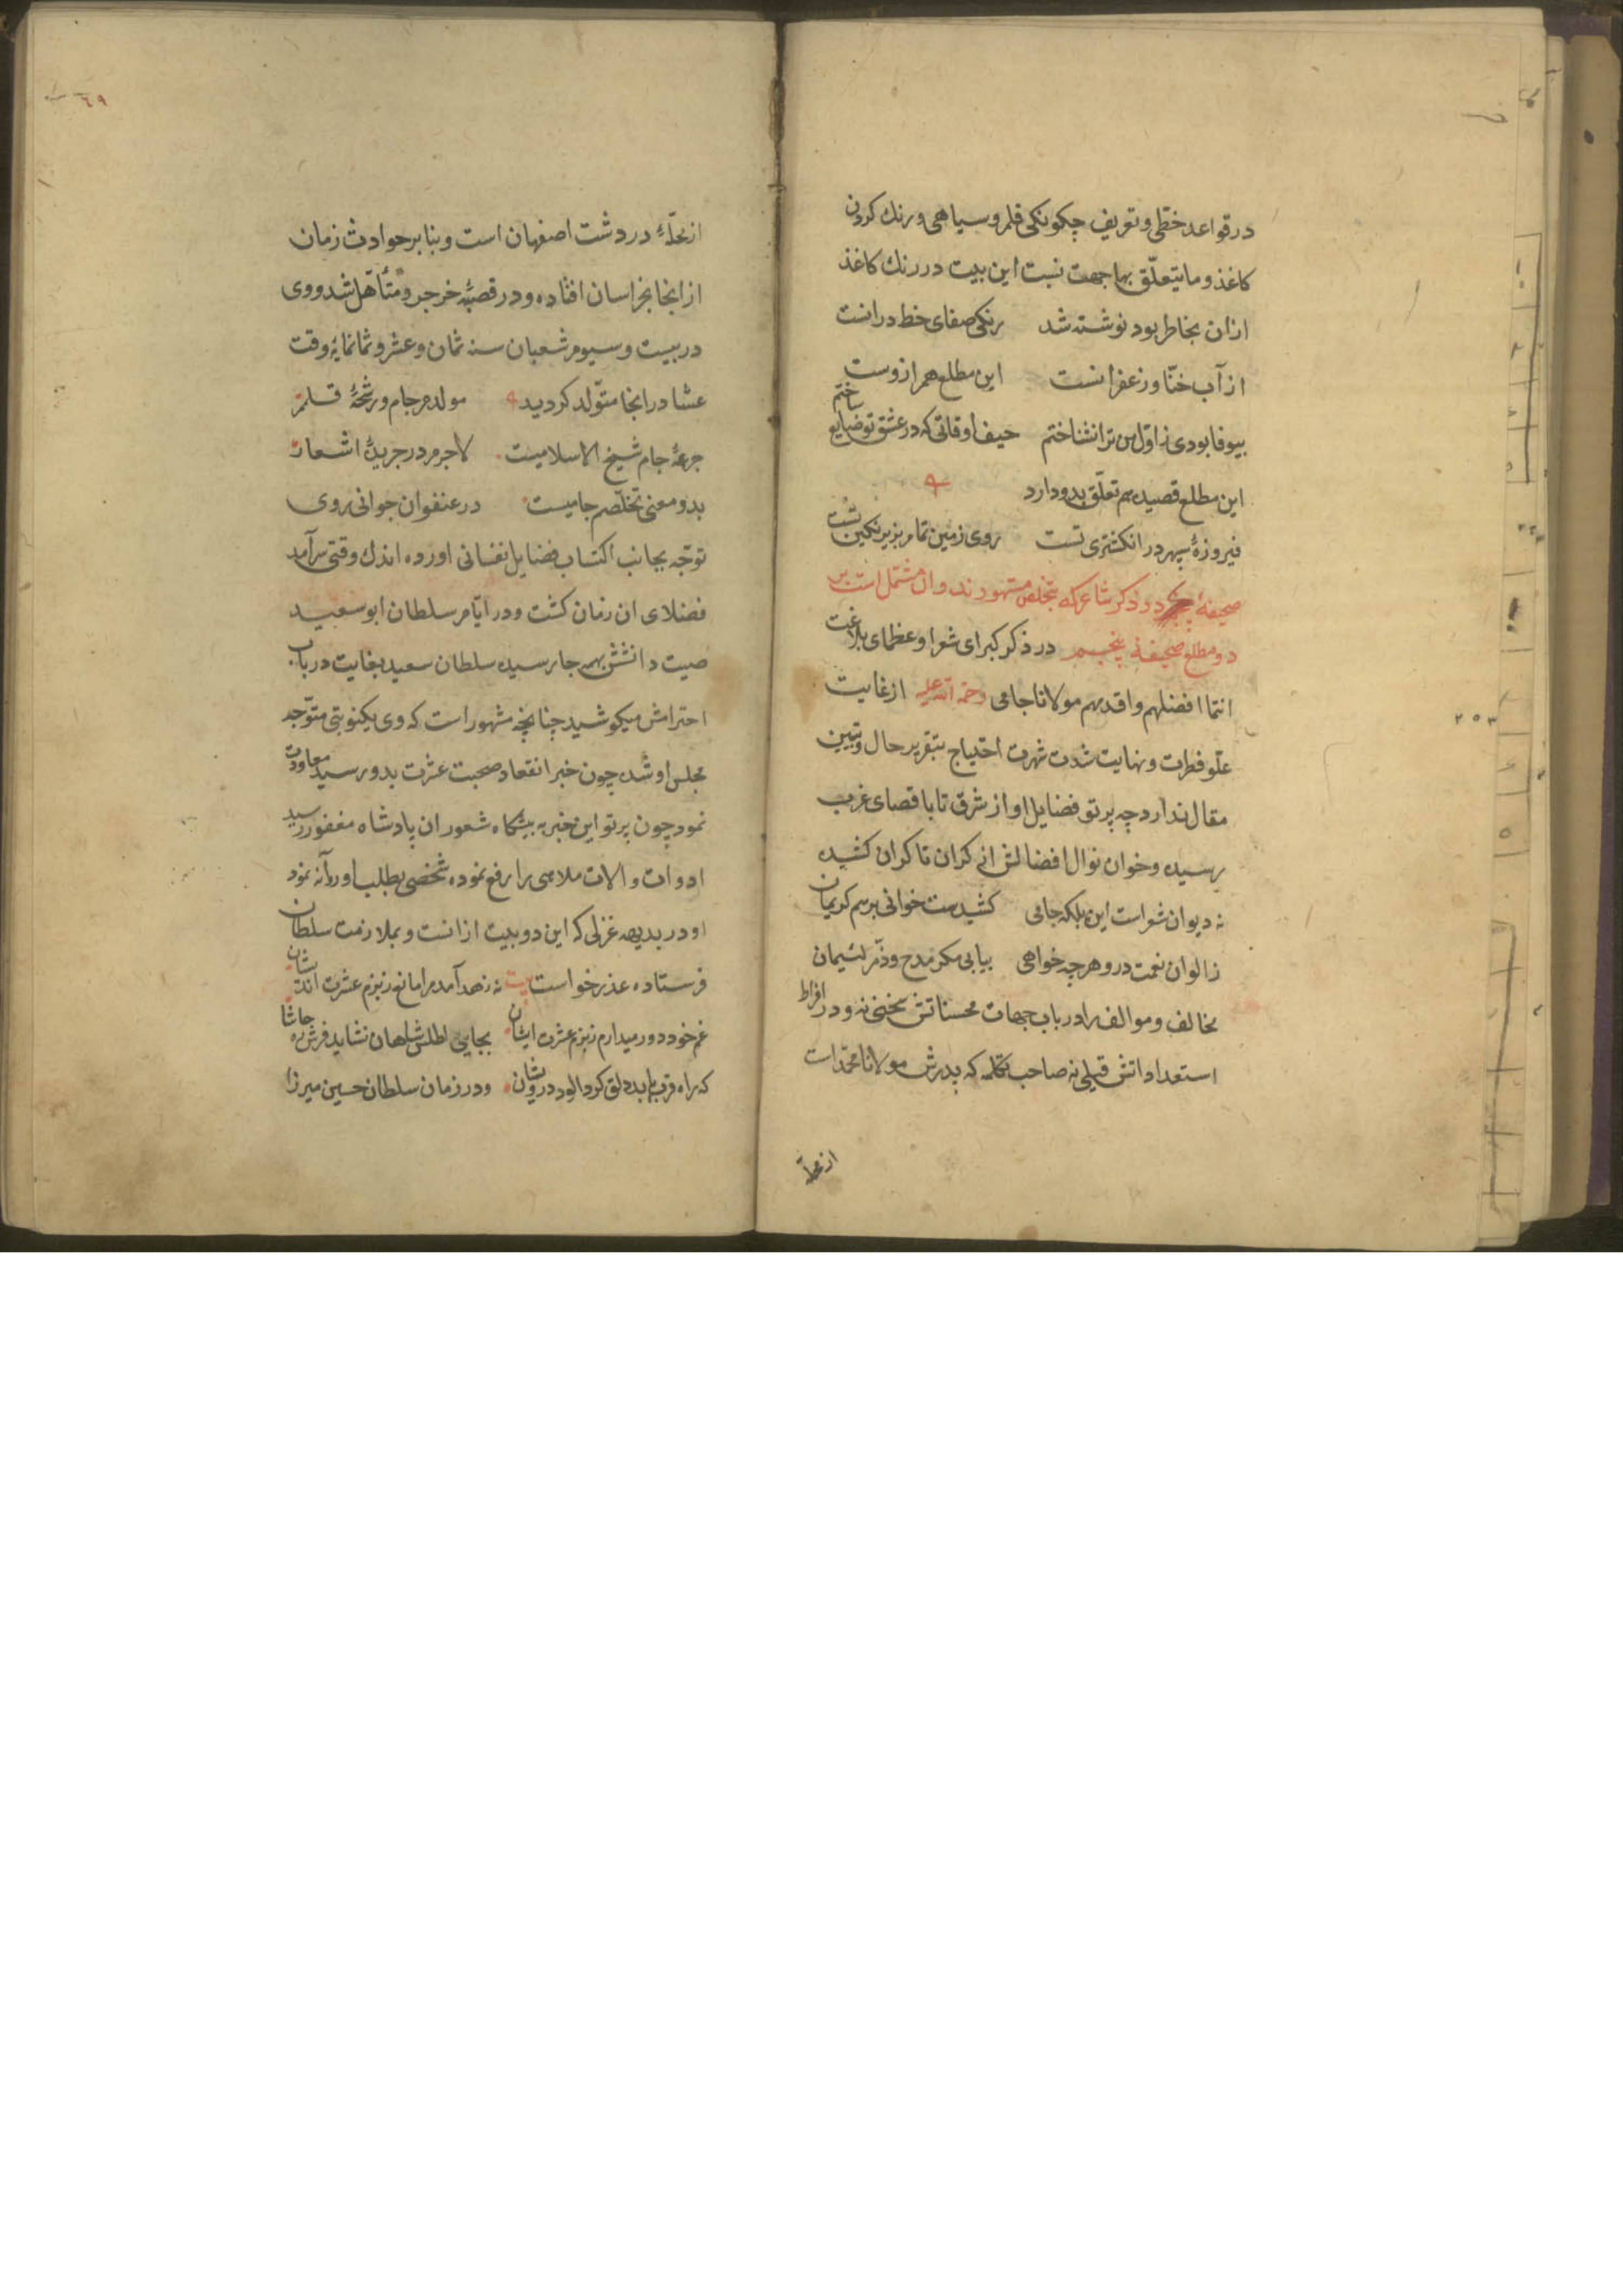 در قواعد خطی و تعریف چکونکی قلم و سیاهی و رنك کردن
کاغذ و ما یتعلّق بها جهت نسبت این بیت در رنك کاغذ
ازان بخاطر بود نوشته شد رنکی صفای خط درانست
از آب حنّا و زعفرانست این مطلع هم ازوست
بیوفا بودی ز اوّل من ترا نشناختم حیف اوقاتی که در عشق تو ضایع ساختم
این مطلع قصیده هم تعلّق بدو دارد
فیروزهٔ سپهر در انکشتری تست روی زمین تمام بزیر نکین تست
صحیفهٔ در ذکر شاعر که بتخلص مشهورند و ان مشتمل است بر
دو مطلع صحیفهٔ پنجم در ذکر کبرای شعرا و عظمای بلاغت
انتما افضلهم و اقدمهم مولانا جامی رحمة الله علیه از غایت
علّو فطرت و نهایت شدت شهرت احتیاج بتقریر حال و تبیین
مقال ندارد چه پرتو فضایل او از شرق تا باقصای غرب
رسیده و خوان نوال افضالش از کران تا کران کشیده
نه دیوان شعر است این بلکه جامی کشیدست خوانی برسم کریمان
ز الوان نعمت درو هرچه خواهی بیابی مکر مدح و ذمّ لئیمان
مخالف و موالف را در باب جهات محسناتش سخنی نه و در افراط
استعداداتش قیلی نه صاحب تکمله که پدرش مولانا محمّد است
از محلّهٔ
٦٩
از محلّهٔ دردشت اصفهان است و بنا بر حوادث زمان
از انجا بخراسان افتاده و در قصبهٔ خرجرد متأهّل شد و وی
در بیست و سیوم شعبان سنه ثمان و عشر و ثمانمایه وقت
عشا در انجا متوّلد کردید مولدم جام و رشحهٔ قلمم
جرعهٔ جام شیخ الاسلامیست لاجرم در جریدهٔ اشعار
بدو معنی تخلّصم جامیست در عنفوان جوانی روی
توجّه بجانب اکتساب فضایل نفسانی اورده اندك وقتی سرآمد
فضلای ان زمان کشت و در ایّام سلطان ابو سعید
صیت دانشش بهمه جا رسیده سلطان سعید بغایت در باب
احترامش میکوشید چنانچه مشهور است که وی یکنوبتی متوّجه
مجلس او شده چون خبر انقعاد صحبت عشرت بدو رسید معاودت
نمود چون پرتو این خبر به پیشکاه شعور ان پادشاه مغفور رسید
ادوات و الات ملاهی را رفع نموده شخصی بطلب او روانه نمود
او در بدیهه غزلی که این دو بیت ازانست و بملازمت سلطان
فرستاده عذر خواست بیت نه زهد آمد مرا مانع ز بزم عشرت اندیشان
غم خود دور میدارم ز بزم عشرت ایشان بجایی کاطلس شاهان نشاید فرش ره حاشا
که راه قرب یابد دلق کرد الود درویشان ودر زمان سلطان حسین میرزا
٢٥٣